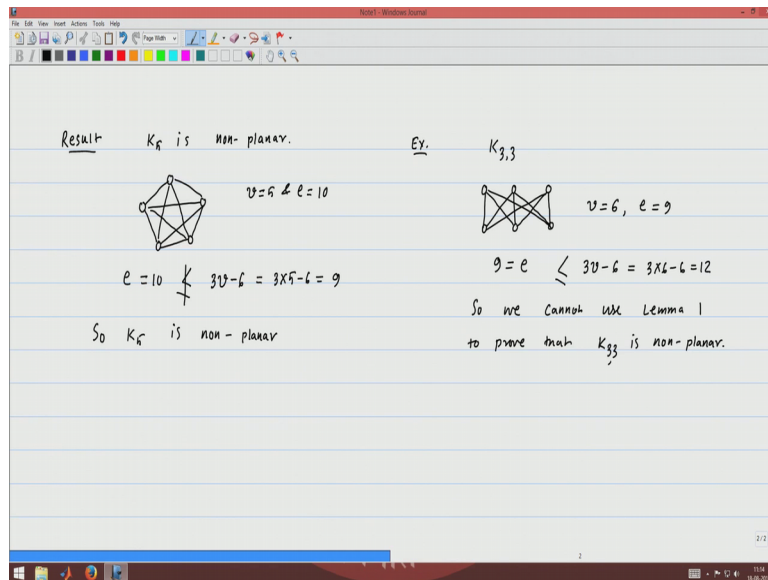 Note1 - Windows Journal
File Edit View Insert Actions Tools Help
Page Width
B I
Result K5 is non-planar.
v=5 & e=10
e = 10 ≰ 3v-6 = 3x5-6 = 9
So K5 is non-planar
Ex. K3,3
v=6, e=9
9 = e ≤ 3v-6 = 3x6-6 = 12
So we cannot use Lemma 1
to prove that K3,3 is non-planar.
2
2/2
11:14